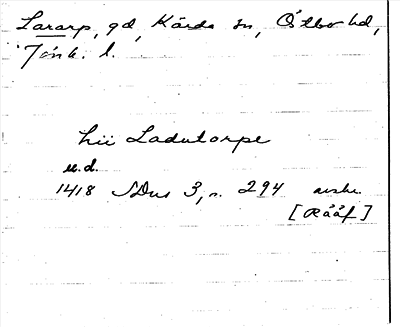 Lararp, gd, Kärda sn, Östbo hd,
Jönk. l.
hii Ladutorpe
u.d.
1418 SDns 3, n. 294 avskr.
[Rääf]